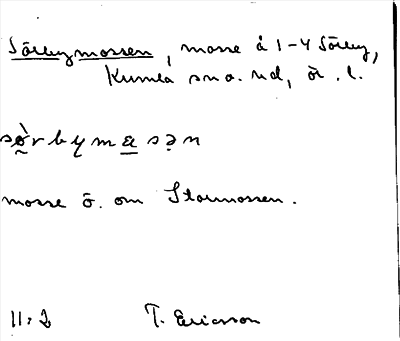 Sörbymossen, mosse å 1-4 Sörby,
Kumla sn o. hd, Ör. l.
sö̀rbymɑsən
mosse ö. om Stormossen.
11:2 T. Ericsson